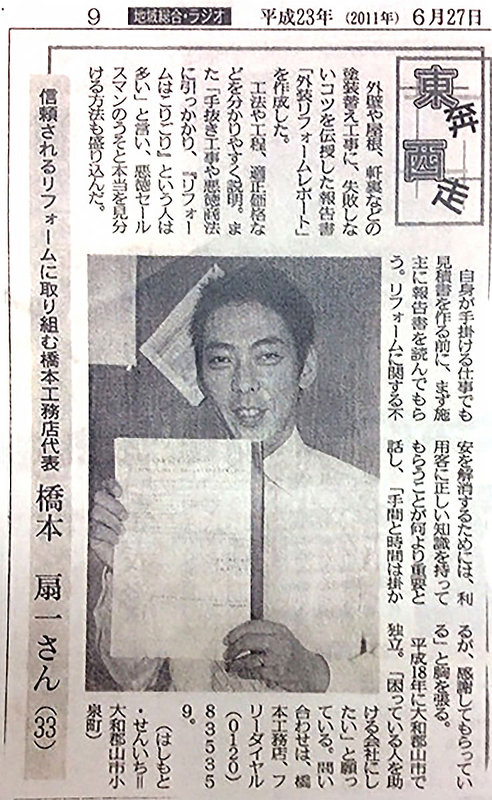 9 地域総合・ラジオ 平成23年 (2011年) 6月27日
東奔西走
外壁や屋根、軒裏などの
塗装替え工事に、失敗しな
いコツを伝授した報告書
「外装リフォームレポート」
を作成した。
工法や工程、適正価格な
どを分かりやすく説明。ま
た「手抜き工事や悪徳商法
に引っかかり、『リフォー
ムはこりごり』という人は
多い」と言い、悪徳セール
スマンのうそと本当を見分
ける方法も盛り込んだ。
自身が手掛ける仕事でも
見積書を作る前に、まず施
主に報告書を読んでもら
う。リフォームに関する不
安を解消するためには、利
用客に正しい知識を持って
もらうことが何より重要と
話し、「手間と時間は掛か
るが、感謝してもらってい
る」と胸を張る。
平成18年に大和郡山市で
独立。「困っている人を助
ける会社にし
たい」と願っ
ている。問い
合わせは、橋
本工務店、フ
リーダイヤル
(0120)
83535
9。
(はしもと
・せんいち=
大和郡山市小
泉町)
信頼されるリフォームに取り組む橋本工務店代表
橋本 扇一さん(33)